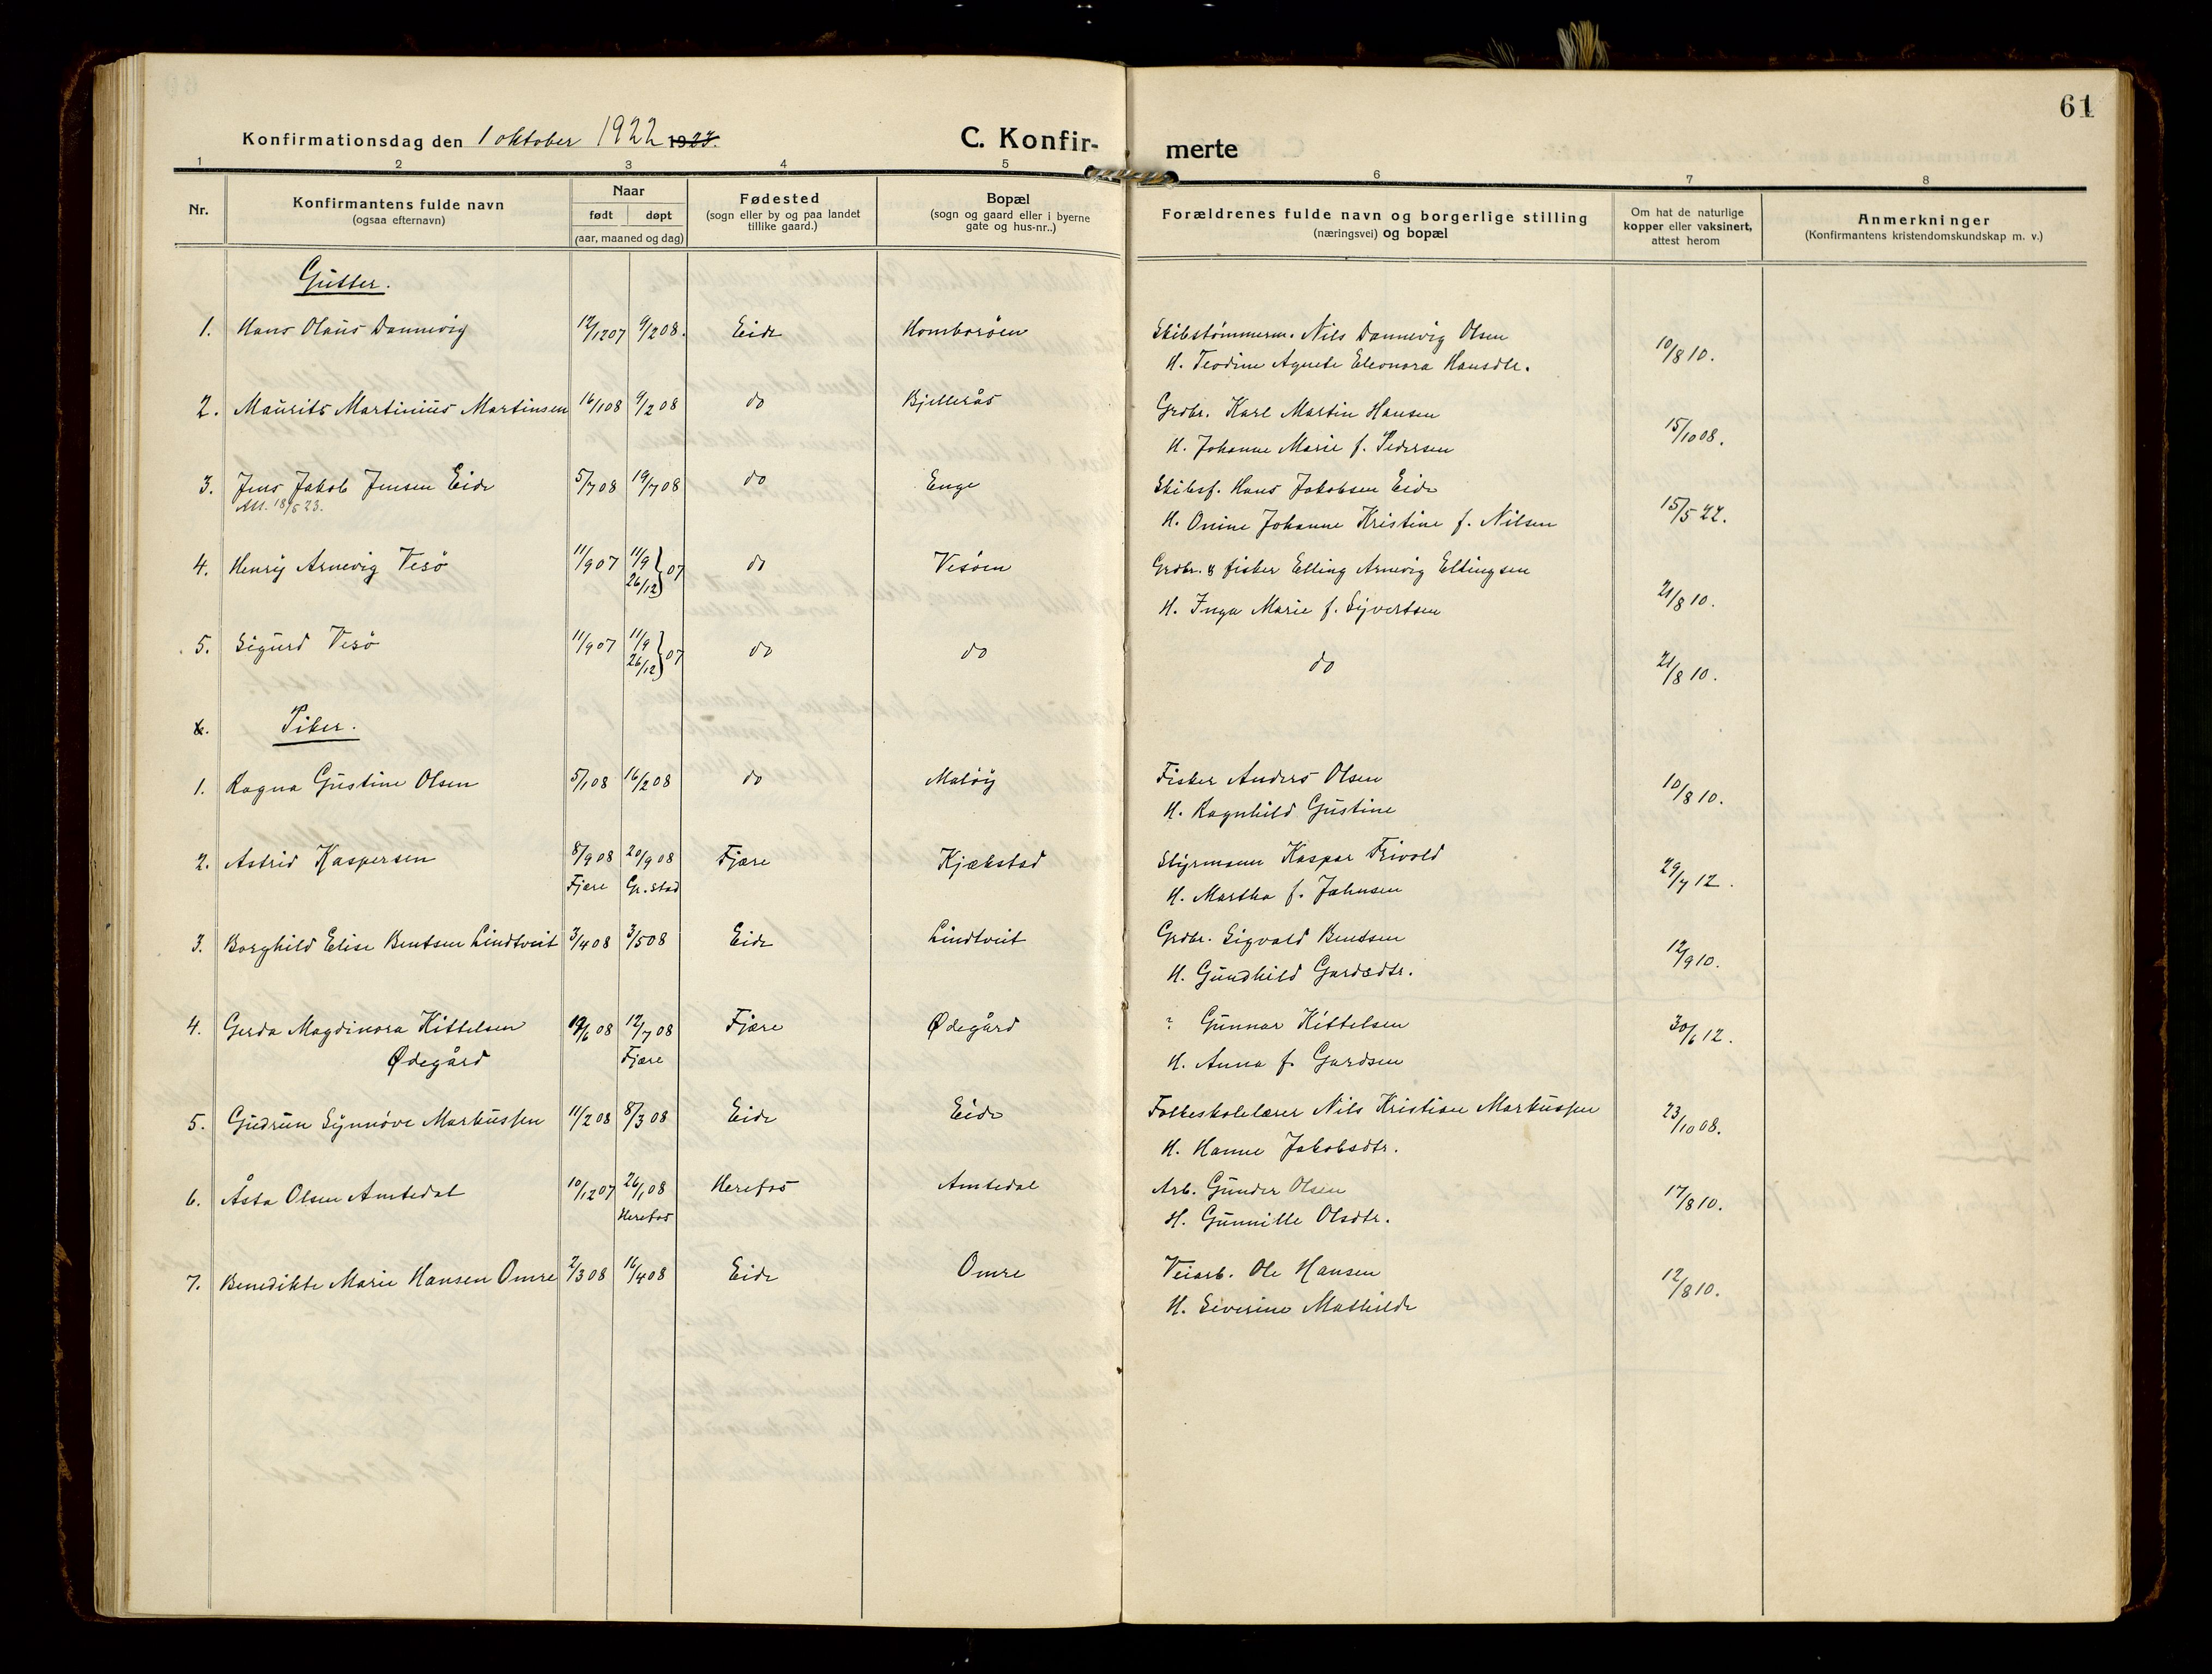 61
Konfirmationsdag den 1 oktober 1922 1924.
C. Konfir-
merte
1 2 3 4 5 6 7 8
Nr.
Konfirmantens fulde navn
(ogsaa efternavn)
Naar
født døpt
(aar, maaned og dag)
Fødested
(sogn eller by og paa landet
tillike gaard.)
Bopæl
(sogn og gaard eller i byerne
gate og hus-nr..)
Forældrenes fulde navn og borgerlige stilling
(næringsvei) og bopæl
Om hat de naturlige
kopper eller vaksinert,
attest herom
Anmerkninger
(Konfirmantens kristendomskundskap m. v.)
Gutter.
1. Hans Olaus Dannevig 12/12 07 9/2 08. Eide Homborøen Skibstømmerm. Nils Dannevig Olsen
H. Teodine Agnete Eleonora Hansdtr. 10/8 10.
2. Maurits Martinius Martinsen 16/1 08 9/2 08 do Bjellerås Grdbr. Karl Martin Hansen
H. Johanne Marie f. Pedersen 15/10 08.
3. Jens Jakob Jensen Eide 5/7 08 19/7 08 do Enge Skibsf. Hans Jakobsen Eide
Att. 18/5 23. H. Onine Johanne Kristine f. Nilsen 15/5 22.
4. Henry Arnevig Vesø 11/9 07 11/9 26/12 } 07 do Vesøen Grdbr. & fisker Elling Arnevig Ellingsen
H. Inga Marie f. Syvertsen 21/8 10.
5. Sigurd Vesø 11/9 07 11/9 26/12 } 07 do do do 21/8 10.
6. Piker.
1. Ragna Gustine Olsen 5/1 08 16/2 08 do Maløy Fisker Anders Olsen
H. Ragnhild Gustine 10/8 10.
2. Astrid Kaspersen 8/9 08 20/9 08 Fjære Kjækstad Styrmann Kaspar Frivold
Fjære Gr.stad H. Martha f. Jahnsen 29/7 12.
3. Borghild Elise Bentsen Lindtveit 3/4 08 3/5 08 Eide Lindtveit Grdbr. Sigvald Bentsen
H. Gundhild Gardsdtr. 12/9 10.
4. Gerda Magdinora Kittelsen 19/6 08 12/7 08 Fjære Ødegård ? Gunnar Kittelsen
Ødegård Fjære H. Anna f. Gardsen 30/6 12.
5. Gudrun Synnøve Markussen 11/2 08 8/3 08 Eide Eide Folkeskolelærer Nils Kristian Markussen
H. Hanne Jakobsdtr. 23/10 08.
6. Åsta Olsen Amtedal 10/12 07 26/1 08 Herefos Amtedal Arb. Gunder Olsen
Herefos H. Gunnille Olsdtr. 17/8 10.
7. Benedikte Marie Hansen Omre 2/3 08 16/4 08 Eide Omre Veiarb. Ole Hansen
H. Severine Mathilde 12/8 10.